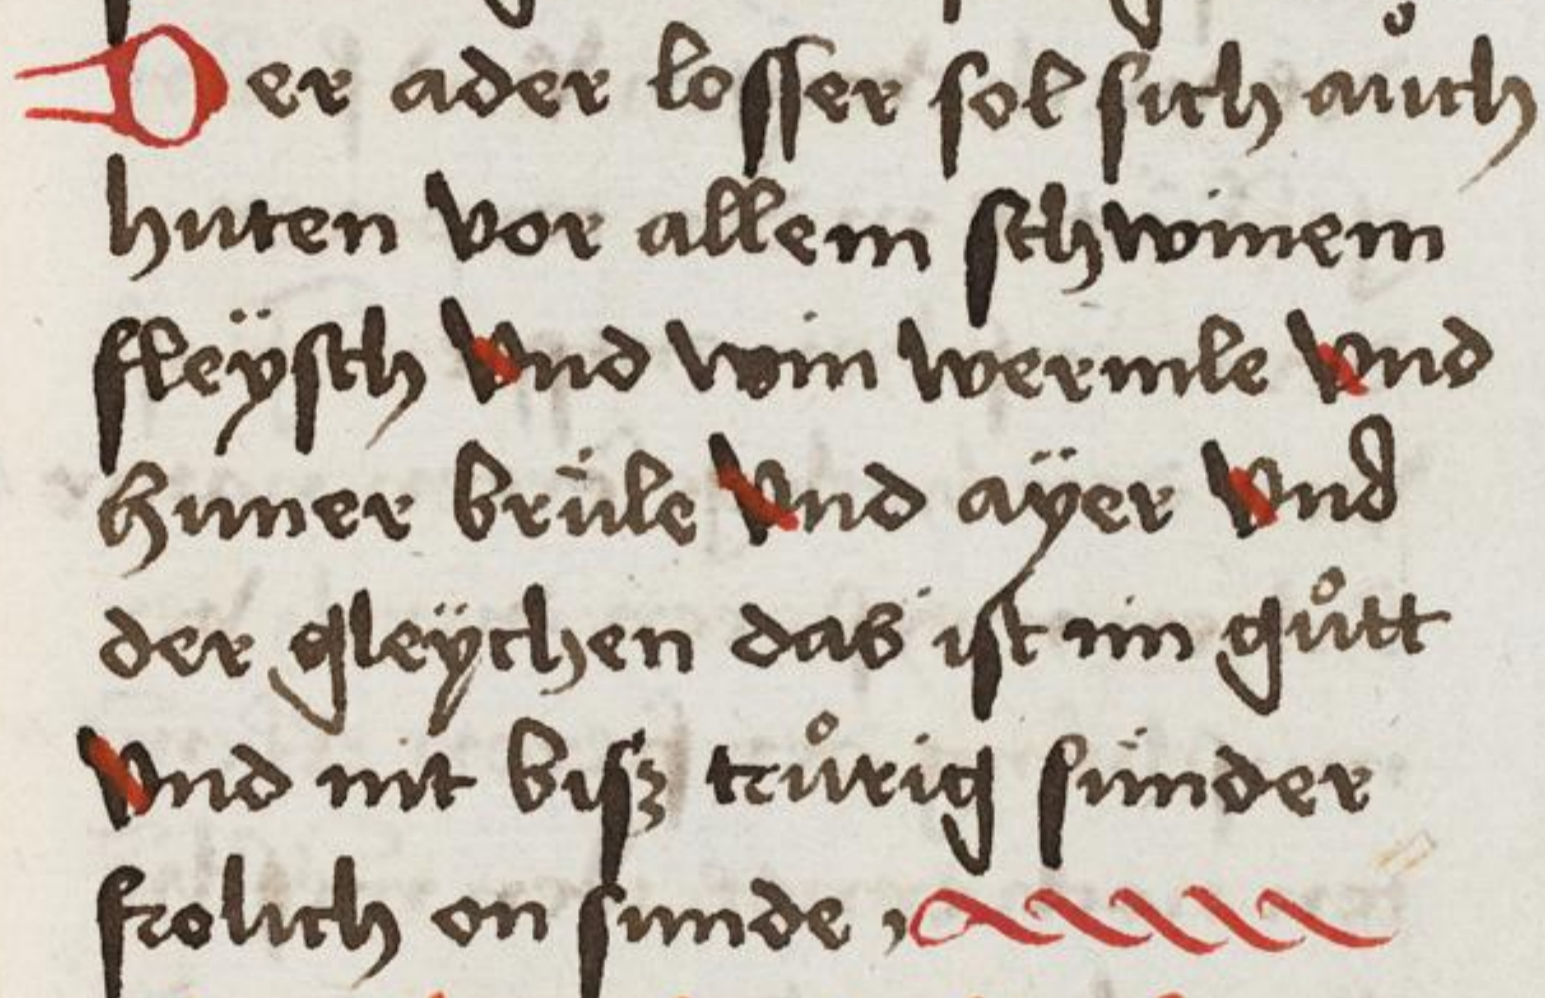 Der ader losser sol sich aůch
huten vor allem schwinem
fleÿsch vnd win wermle vnd
huner brüle vnd aÿer vnd
der gleÿchen das ist im gůtt
vnd nit bisz trůrig sünder
frolich on sunde ,